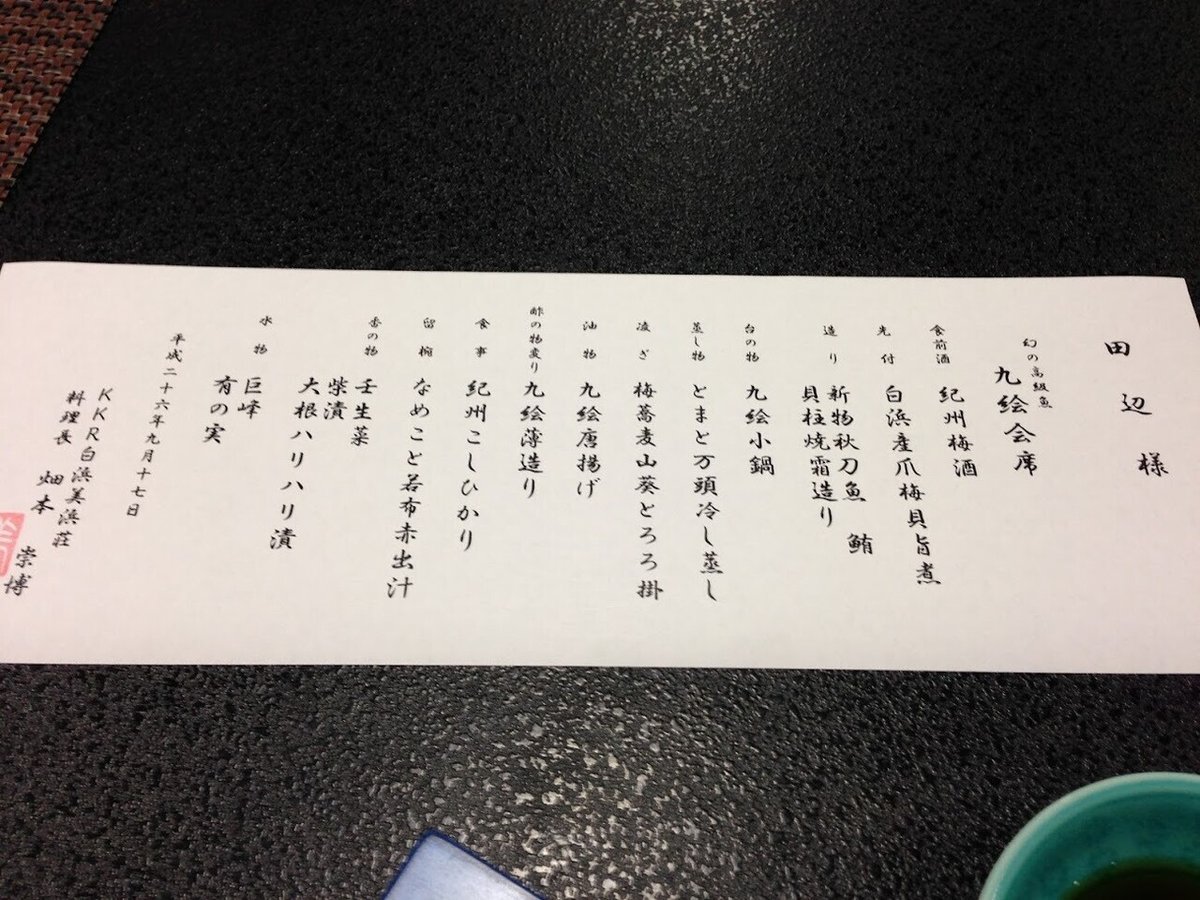 田辺様
幻の高級魚
九絵会席
食前酒 紀州梅酒
先付 白浜産爪梅貝旨煮
造り 新物秋刀魚 鮪
貝柱焼霜造り
台の物 九絵小鍋
蒸し物 とまと万頭冷し蒸し
凌ぎ 梅蕎麦山葵とろろ掛
油物 九絵唐揚げ
酢の物変り 九絵薄造り
食事 紀州こしひかり
留椀 なめこと若布赤出汁
香の物 壬生菜
柴漬
大根ハリハリ漬
水物 巨峰
有の実
平成二十六年九月十七日
KKR白浜美浜荘
料理長 畑本 崇博